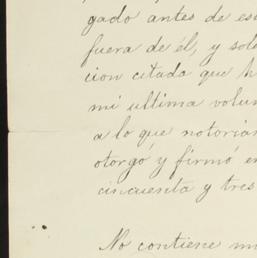 gado antes de es
fuera de él, y sol
cion citada que h
mi ultima volun
a lo que notorian
otorgó y firmó en
cincuenta y tres
No contiene m